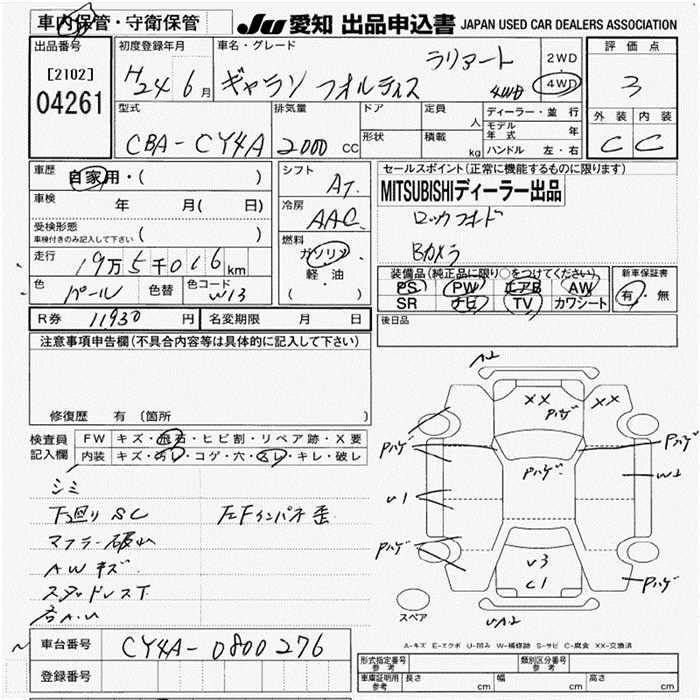 車内保管・守衛保管
JU 愛知 出品申込書 JAPAN USED CAR DEALERS ASSOCIATION
出品番号 [2102] 04261
初度登録年月 H24 6月
車名・グレード ギャラン フォルティス ラリアート 4WD
2WD・4WD
評価点 3
外装 内装
C C
型式 CBA-CY4A
排気量 2000 CC
ドア 定員 人
形状 積載 kg
ディーラー・並行
モデル年式 年
ハンドル 左・右
車歴 自家用・( )
車検 年 月( 日)
受検形態
車検付きのみ記入して下さい ( )
走行 19万5千016km
色 パール 色替 色コード W13
シフト AT
冷房 AAC
燃料 ガソリン
軽・油
( )
セールスポイント(正常に機能するものに限ります)
MITSUBISHIディーラー出品
ロックフォード
Bカメラ
装備品(純正品に限り○をつけてください)
PS PW エアB AW
SR ナビ TV カワシート
新車保証書
有・無
R券 11930円 名変期限 月 日
後日品
注意事項申告欄(不具合内容等は具体的に記入して下さい)
修復歴 有 〔箇所 〕
検査員記入欄
FW キズ・飛石・ヒビ割・リペア跡・X要
内装 キズ・汚レ・コゲ・穴・スレ・キレ・破レ
シミ
下廻りSC 左Fインパネ歪
マフラー破れ
AWキズ
スタッドレスT
各A.U
A2
XX XX
Pハゲ
Pハゲ Pハゲ
Pハゲ W2
U1
Pハゲ
U3
C1 Pハゲ
スペア UA2
A-キズ E-エクボ U-凹み W-補修跡 S-サビ C-腐食 XX-交換済
車台番号 CY4A-0800276
登録番号
形式指定番号 参考 類別区分番号 参考
車庫証明用 参考 長さ cm 幅 cm 高さ cm